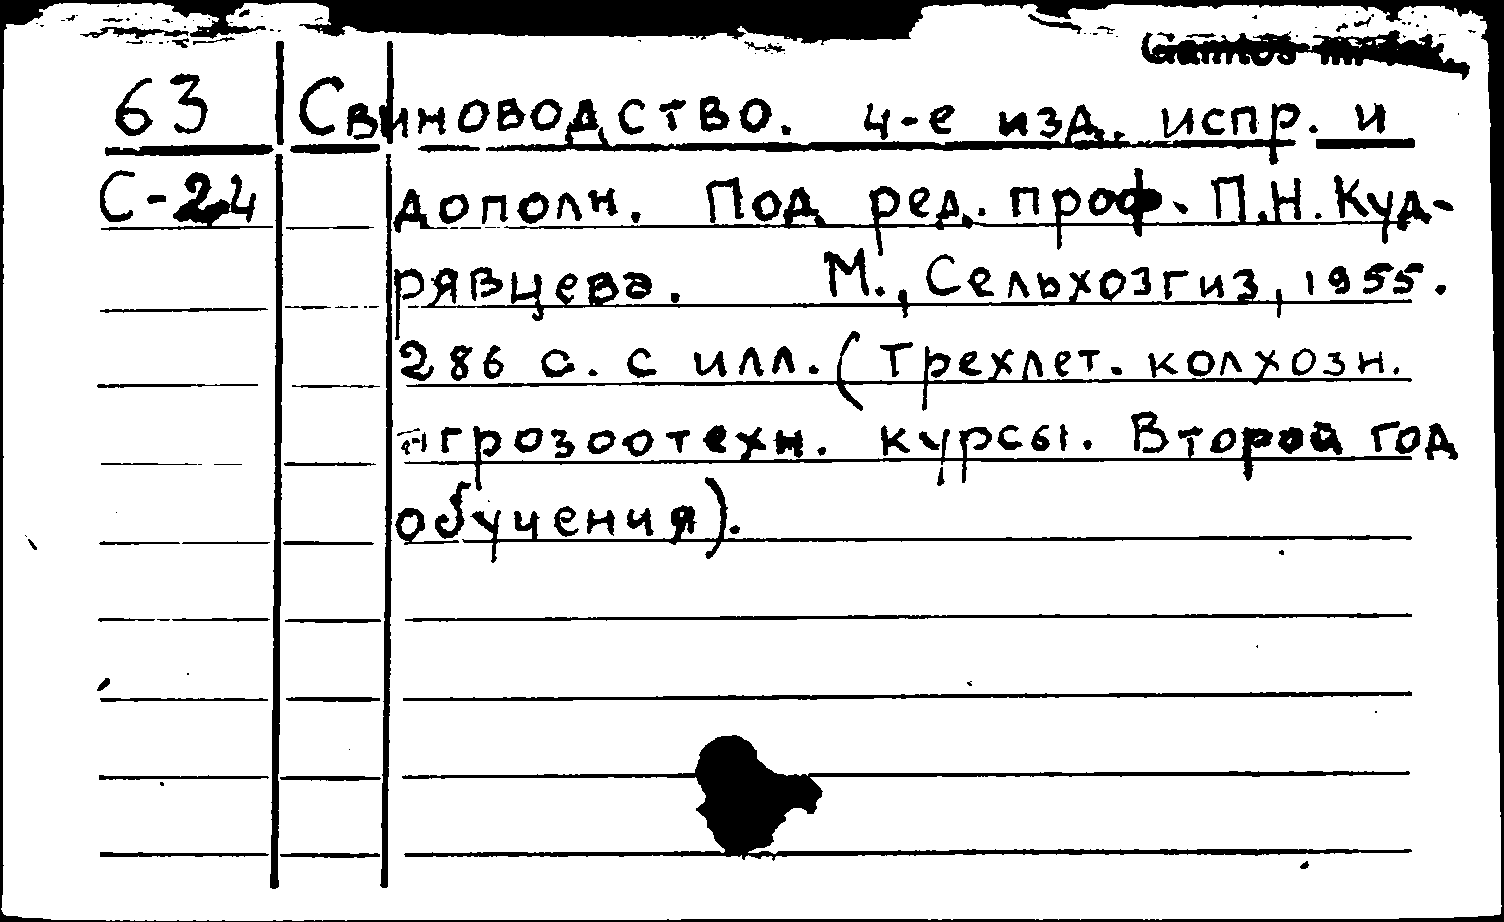 63 Свиноводство. 4-е изд. испр. и
С-24 дополн. Под ред. проф. П.Н.Куд-
рявцева. М., Сельхозгиз, 1955.
286 с. с илл. (Трехлет. колхозн.
агрозоотехн. курсы. Второй год
обучения).